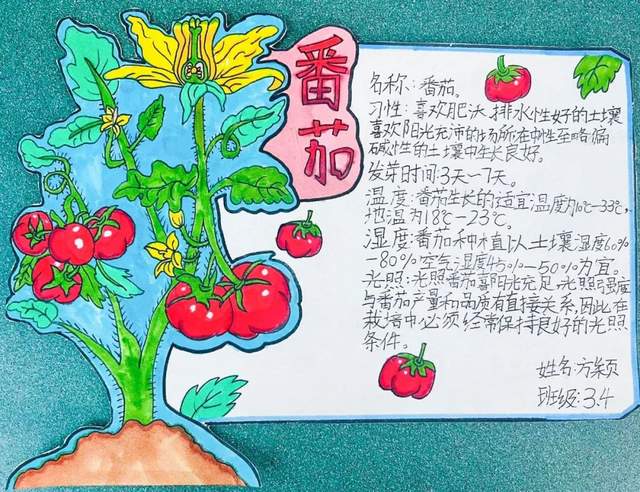 番茄
名称:番茄。
习性:喜欢肥沃,排水性好的土壤
喜欢阳光充沛的场所在中性至略偏
碱性的土壤中生长良好。
发芽时间:3天~7天。
温度:番茄生长的适宜温度为10℃-33℃,
地温为18℃-23℃。
湿度:番茄种植以土壤湿度60%
-80%空气湿度45%-50%为宜。
光照:光照番茄喜阳光充足,光照强度
与番茄产量和品质有直接关系,因此在
栽培中必须经常保持良好的光照
条件。
姓名:方颖
班级:3.4